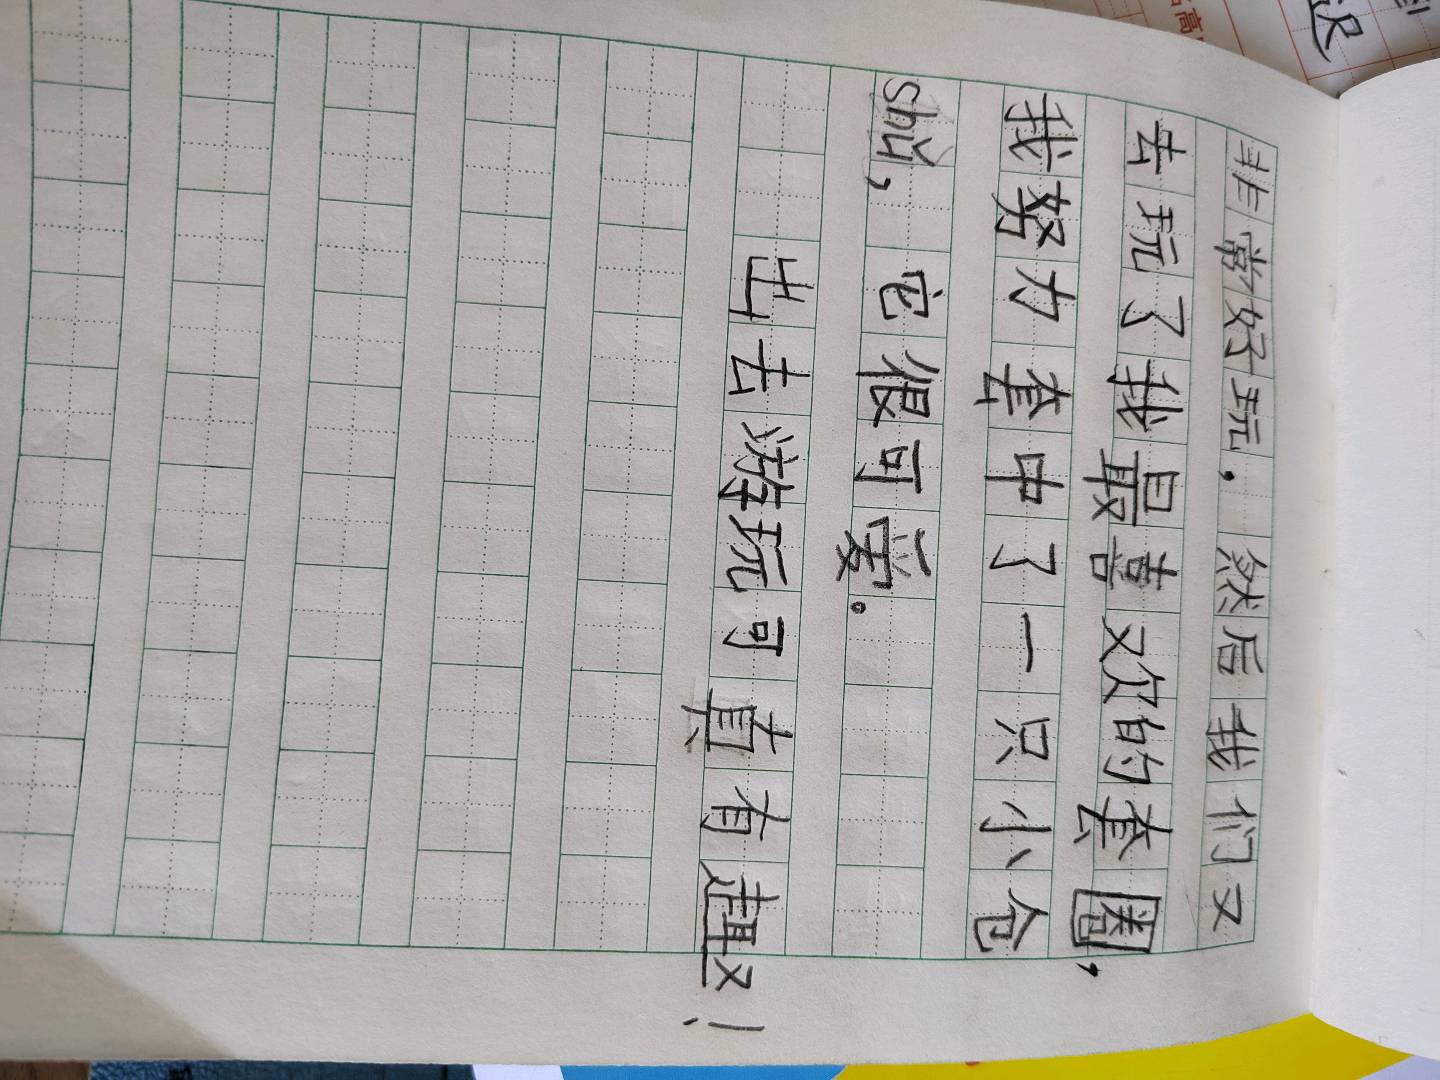 非常好玩，然后我们又
去玩了我最喜欢的套圈，
我努力套中了一只小仓
shǔ，它很可爱。
出去游玩可真有趣！